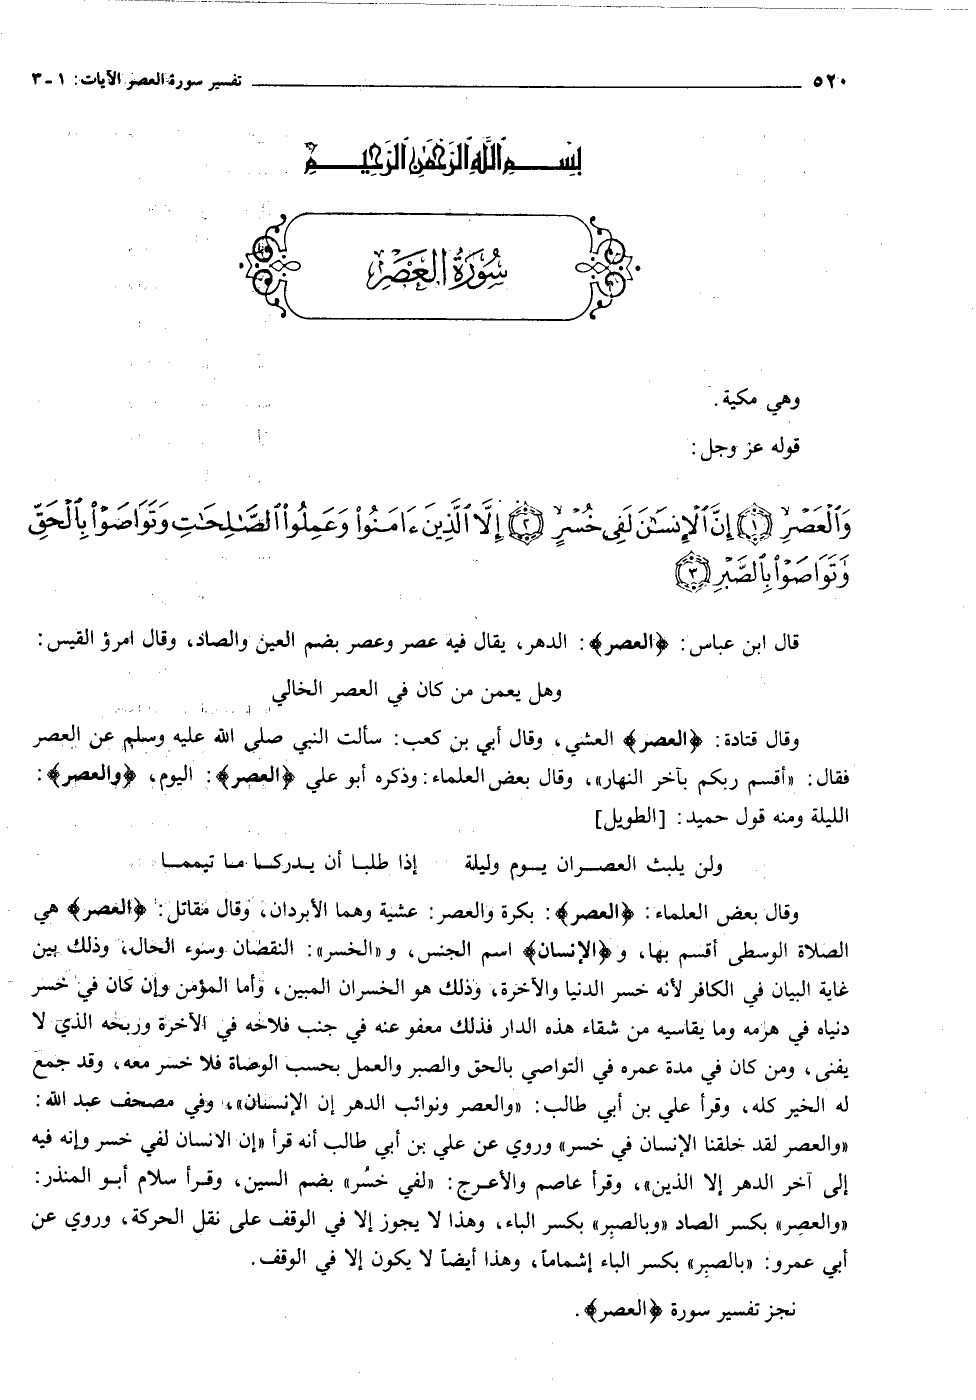 ٥٢٠ تفسير سورة العصر الآيات: ١ - ٣
بِسْمِ اللَّهِ الرَّحْمَٰنِ الرَّحِيمِ
سُورَةُ العَصْرِ
وهي مكية.
قوله عز وجل:
وَٱلْعَصْرِ ﴿١﴾ إِنَّ ٱلْإِنسَٰنَ لَفِى خُسْرٍ ﴿٢﴾ إِلَّا ٱلَّذِينَ ءَامَنُوا۟ وَعَمِلُوا۟ ٱلصَّٰلِحَٰتِ وَتَوَاصَوْا۟ بِٱلْحَقِّ
وَتَوَاصَوْا۟ بِٱلصَّبْرِ ﴿٣﴾
قال ابن عباس: ﴿العصر﴾: الدهر، يقال فيه عصر وعصر بضم العين والصاد، وقال امرؤ القيس:
وهل يعمن من كان في العصر الخالي
وقال قتادة: ﴿العصر﴾ العشي، وقال أبي بن كعب: سألت النبي صلى الله عليه وسلم عن العصر
فقال: «أقسم ربكم بآخر النهار»، وقال بعض العلماء: وذكره أبو علي ﴿العصر﴾: اليوم، ﴿والعصر﴾:
الليلة ومنه قول حميد: [الطويل]
ولن يلبث العصـــران يــوم وليلة إذا طلبـا أن يـدركـا مـا تيممـا
وقال بعض العلماء: ﴿العصر﴾: بكرة والعصر: عشية وهما الأبردان، وقال مقاتل: ﴿العصر﴾ هي
الصلاة الوسطى أقسم بها، و ﴿الإنسان﴾ اسم الجنس، و «الخسر»: النقصان وسوء الحال، وذلك بين
غاية البيان في الكافر لأنه خسر الدنيا والآخرة، وذلك هو الخسران المبين، وأما المؤمن وإن كان في خسر
دنياه في هرمه وما يقاسيه من شقاء هذه الدار فذلك معفو عنه في جنب فلاحه في الآخرة وربحه الذي لا
يفنى، ومن كان في مدة عمره في التواصي بالحق والصبر والعمل بحسب الوصاة فلا خسر معه، وقد جمع
له الخير كله، وقرأ علي بن أبي طالب: «والعصر ونوائب الدهر إن الإنسان»، وفي مصحف عبد الله:
«والعصر لقد خلقنا الإنسان في خسر» وروي عن علي بن أبي طالب أنه قرأ «إن الانسان لفي خسر وإنه فيه
إلى آخر الدهر إلا الذين»، وقرأ عاصم والأعـرج: «لفي خسُر» بضم السين، وقـرأ سلام أبـو المنذر:
«والعصِر» بكسر الصاد «وبالصبِر» بكسر الباء، وهذا لا يجوز إلا في الوقف على نقل الحركة، وروي عن
أبي عمرو: «بالصبِر» بكسر الباء إشماماً، وهذا أيضاً لا يكون إلا في الوقف.
نجز تفسير سورة ﴿العصر﴾.